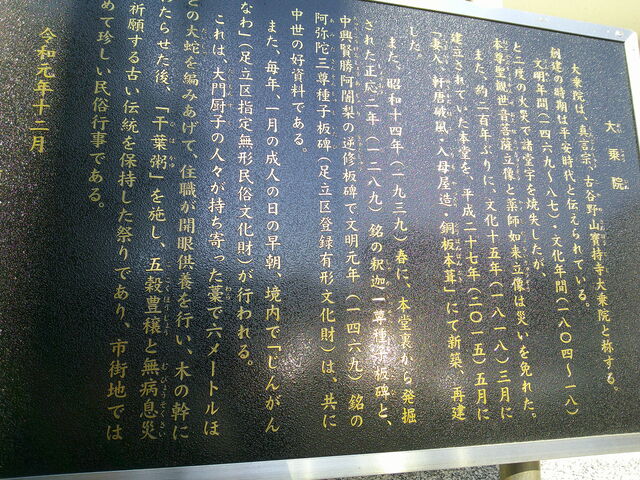 大乗院
大乗院は、真言宗、古谷野山寳持寺大乗院と称する。
創建の時期は平安時代と伝えられている。
文明年間(一四六九～八七)・文化年間(一八〇四～一八)
と二度の火災で諸堂宇を焼失したが、
本尊聖観世音菩薩立像と薬師如来立像は災いを免れた。
また、約二百年ぶりに、文化十五年(一八一八)三月に
建立されていた本堂を、平成二十七年(二〇一五)五月に
「奏入、軒唐破風・入母屋造・銅板本葺」にて新築、再建
した。
また、昭和十四年(一九三九)春に、本堂裏から発掘
された正応二年(一二八九)銘の釈迦一尊種子板碑と、
中興賢勝阿闍梨の逆修板碑で文明元年(一四六九)銘の
阿弥陀三尊種子板碑(足立区登録有形文化財)は、共に
中世の好資料である。
また、毎年、一月の成人の日の早朝、境内で「じんがん
なわ」(足立区指定無形民俗文化財)が行われる。
これは、大門厨子の人々が持ち寄った藁で六メートルほ
どの大蛇を編みあげて、住職が開眼供養を行い、木の幹に
わたらせた後、「干葉粥」を施し、五穀豊穣と無病息災
祈願する古い伝統を保持した祭りであり、市街地では
めて珍しい民俗行事である。
令和元年十二月